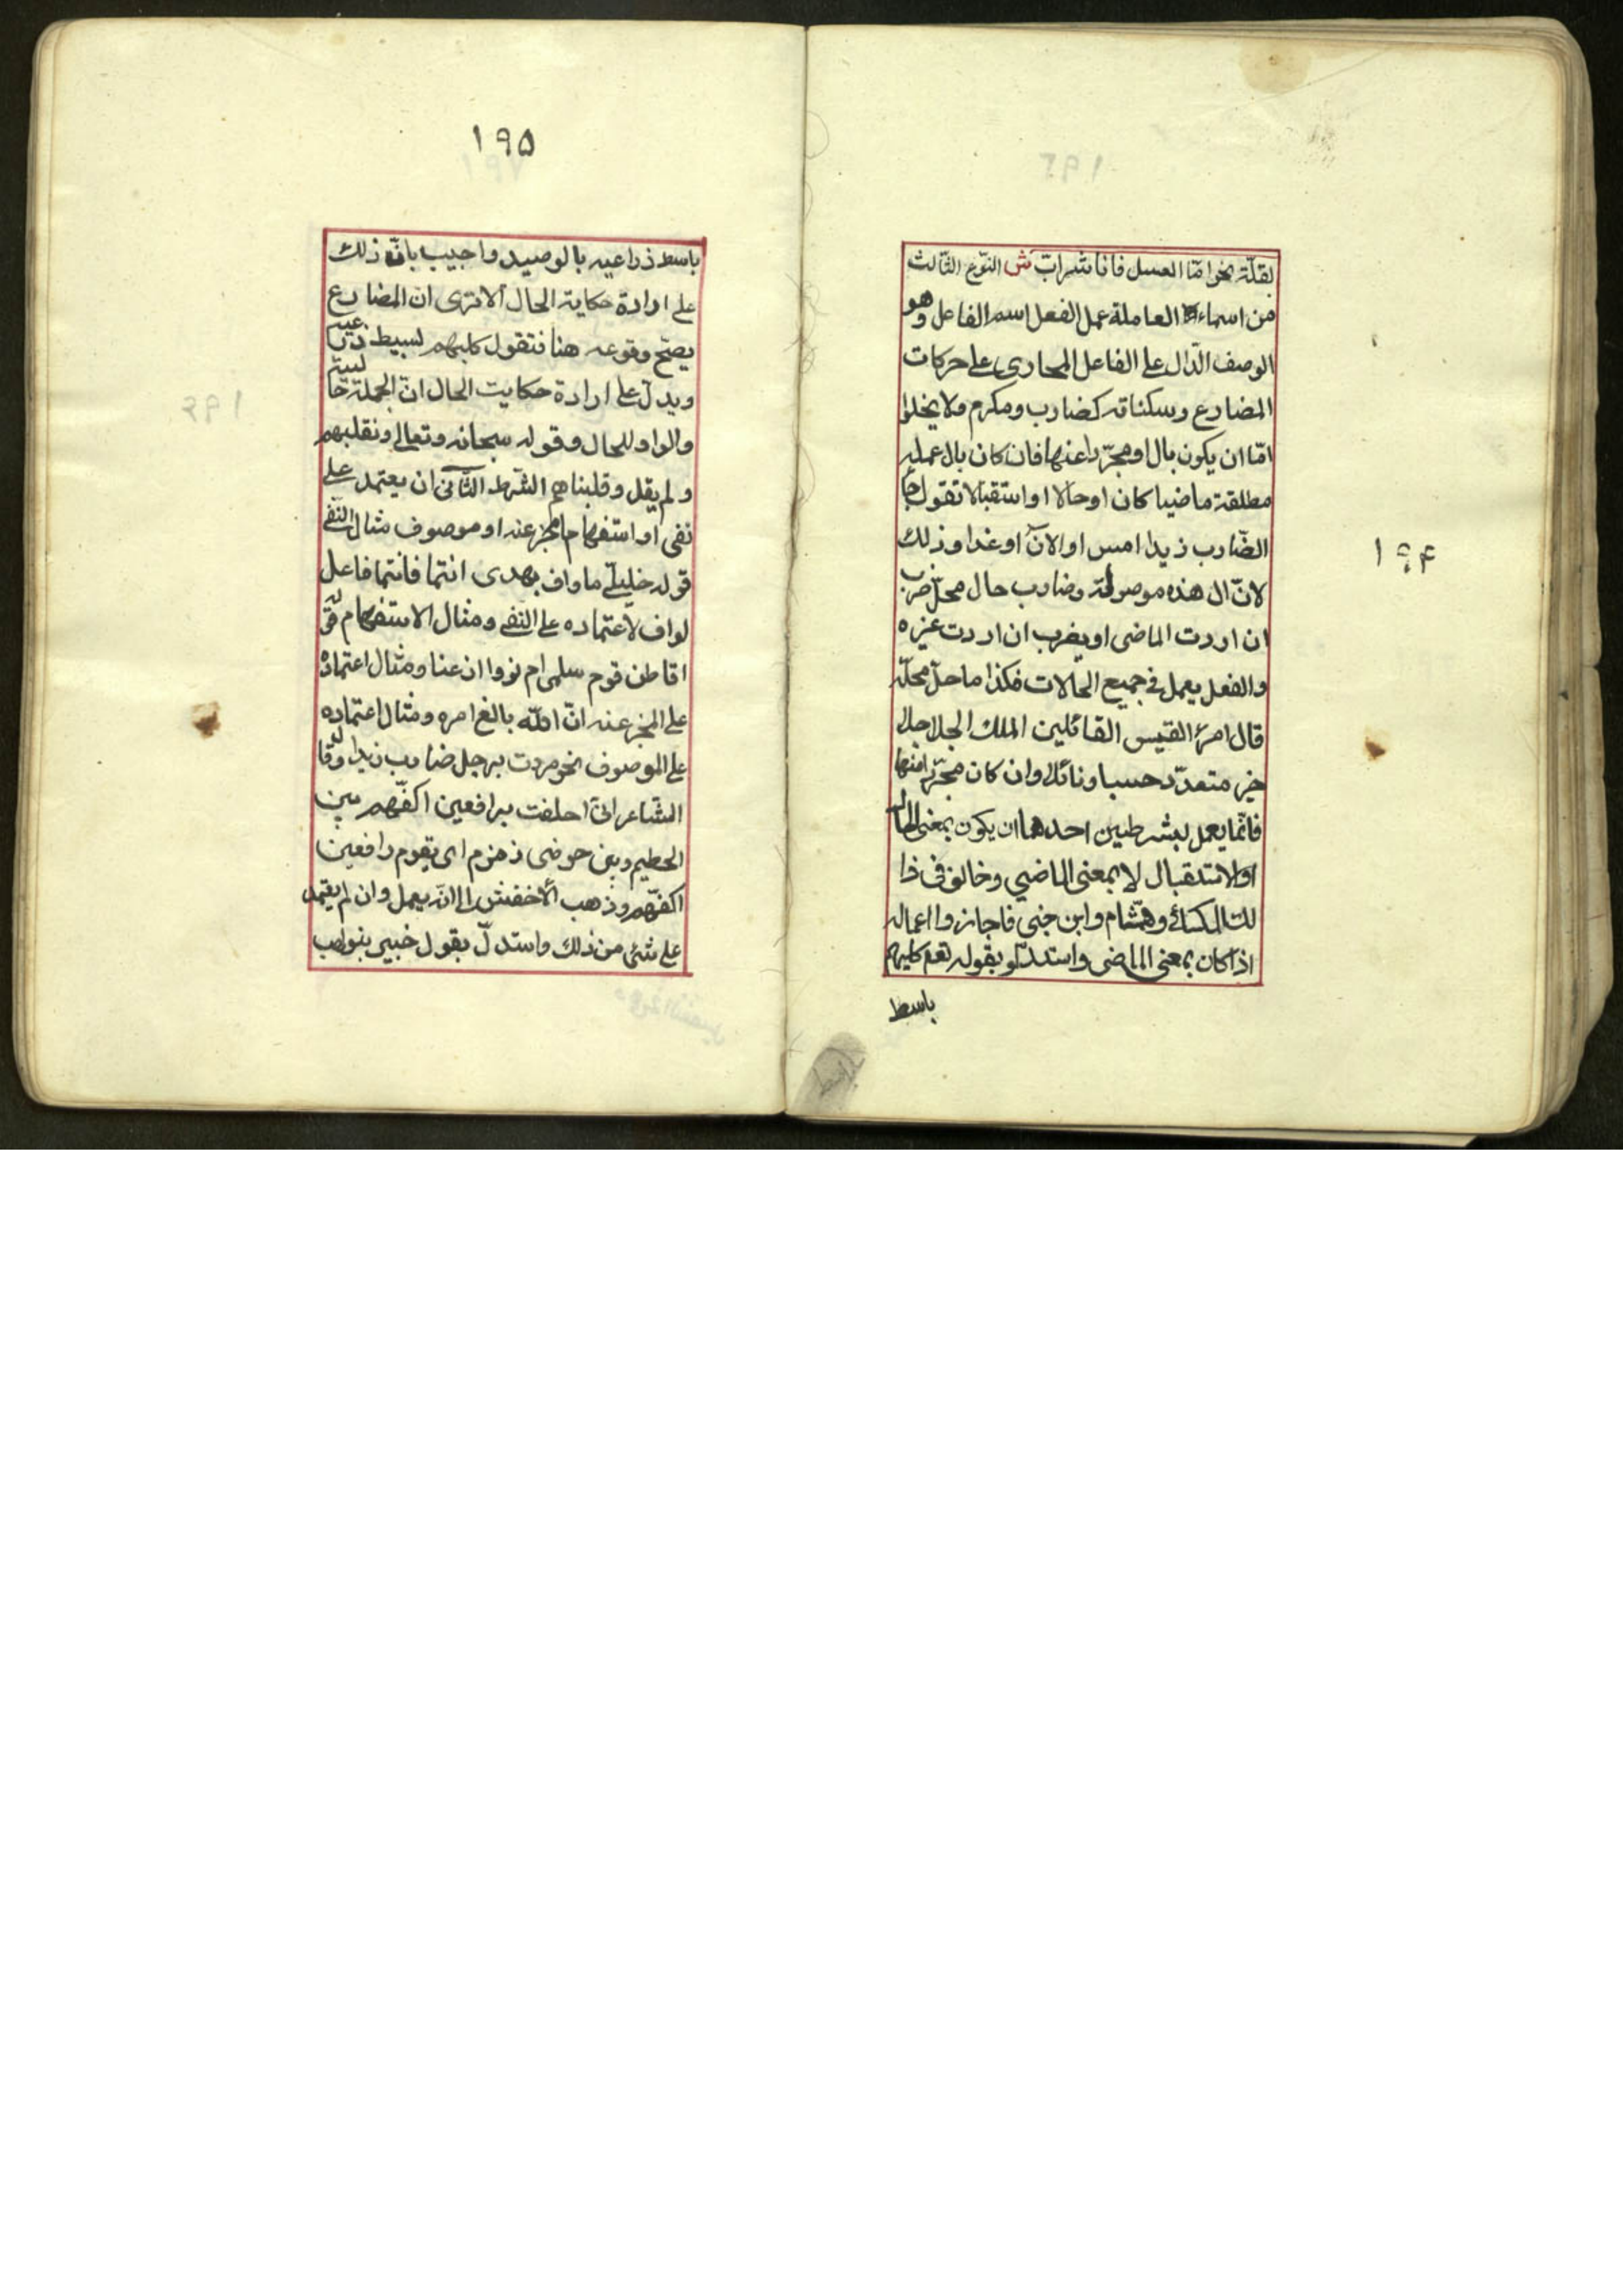 ١٩۴
لقلّة نحو امّا العسل فانا شراب ش النّوع الثّالث
من اسماء العاملة عمل الفعل اسم الفاعل وهو
الوصف الدّال على الفاعل المجارى على حركات
المضارع وسكناته كضارب ومكرم ولا يخلوا
امّا ان يكون بال او مجرّدا عنها فان كان بال عمله
مطلقة ماضيا كان او حالا او استقبالا تقول جا
الضّارب زيدا امس او الآن او غدا وذلك
لانّ ال هذه موصولة وضارب حال محلّ ضرب
ان اردت الماضى او يضرب ان اردت غيره
والفعل يعمل في جميع الحالات فكذا ما حلّ محلّه
قال امرئ القيس القائلين الملك الجلاجلا
خير متعدّد حسبا ونائلا وان كان مجرّدا منها
فانّما يعمل بشرطيين احدهما ان يكون بمعنى الحال
او الاستقبال لا بمعنى الماضي وخالف فى ذا
لك الكسائي وهشام وابن جنى فاجازوا اعماله
اذا كان بمعنى الماضى واستدلّو بقوله تعم كلبهم
باسط
١٩۵
باسط ذراعيه بالوصيد واجيب بانّ ذلك
على ارادة حكاية الحال الا ترى انّ المضارع
يصحّ وقوعه هنا فتقول كلبهم يبسيط ذراعيه
ويدلّ على ارادة حكايت الحال انّ الجملة حاليّة
والواو للحال وقوله سبحانه وتعالى ونقلبهم
ولم يقل وقلبناهم الشّرط الثّانى ان يعتمد على
نفى او استفهام او مخبر عنه او موصوف مثال النّفى
قوله خليليّ ما واف بهدى انتما فانتما فاعل
لواف لاعتماده على النّفى ومثال الاستفهام قوله
اقاطن قوم سلمى ام نووا اذعنا ومثال اعتماده
على المخبر عنه انّ اللّه بالغ امره ومثال اعتماده
على الموصوف نحو مردت برجل ضارب زيدا وقال
الشّاعر انّى احلفت برافعين اكفّهم بين
الحطيم وبين حوضى ذمزم اى بقوم رافعين
اكفّهم وذهب الأخفش الى انّه يعمل وان لم يعتمد
على شئ من ذلك واستدلّ بقول خبير بنولهب